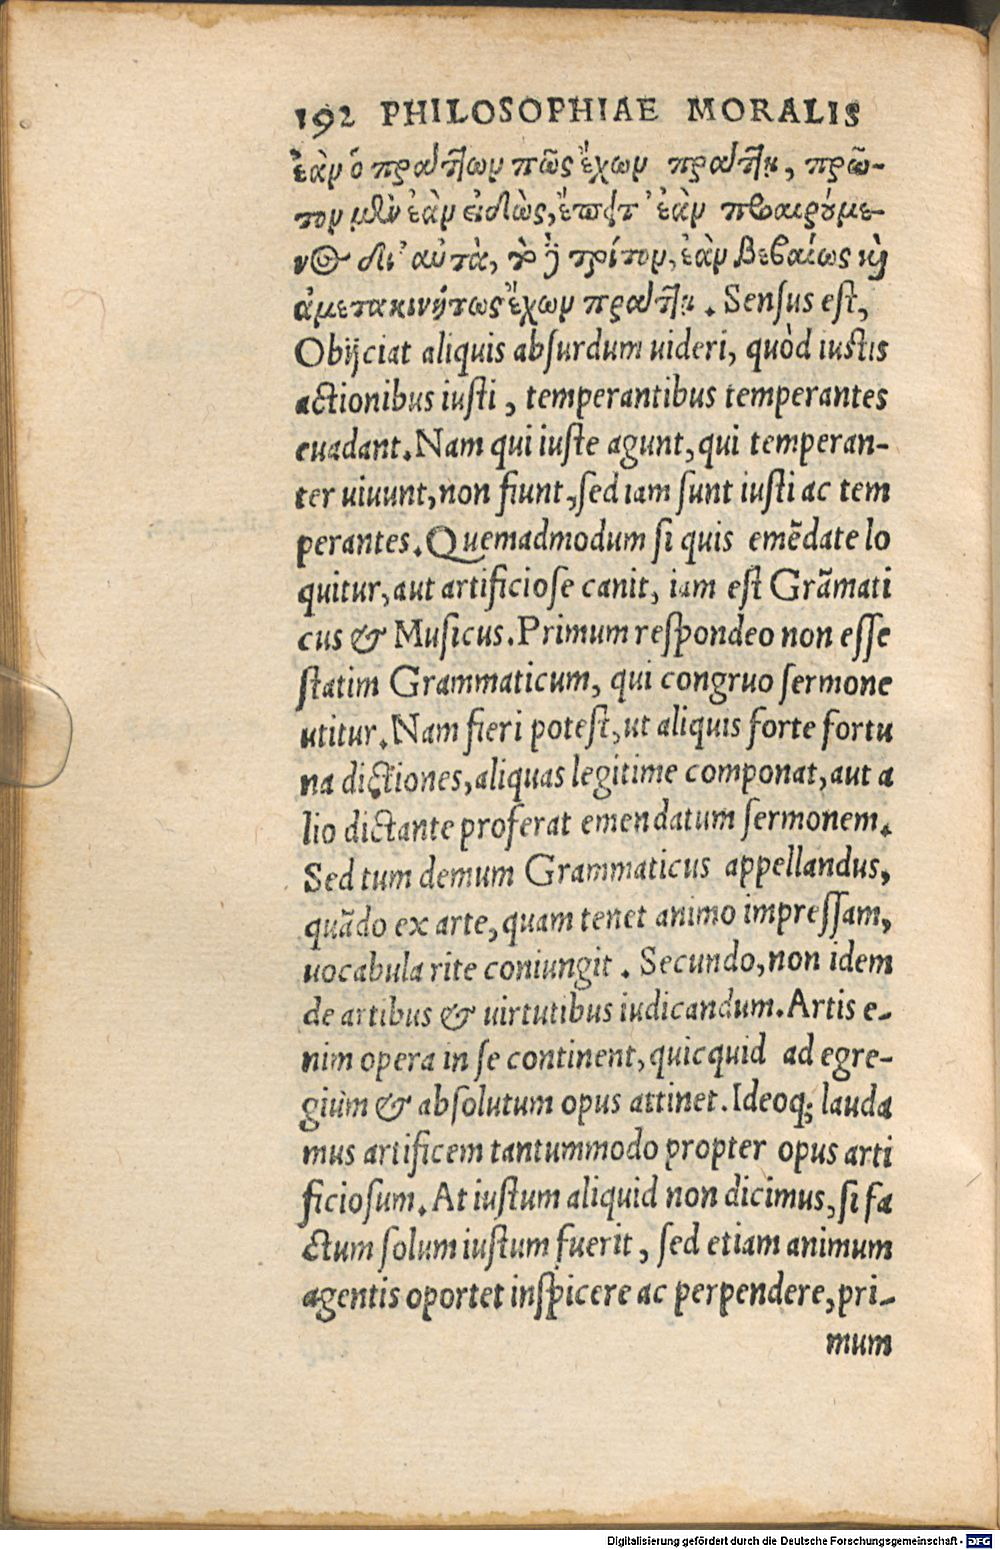 192 PHILOSOPHIAE MORALIS
ἐὰν ὁ πράττων πῶς ἔχων πράττῃ, πρῶ-
τον μὲν ἐὰν εἰδὼς, ἔπειτ' ἐὰν προαιρούμε-
νος δι' αὐτὰ, τὸ δὲ τρίτον, ἐὰν βεβαίως καὶ
ἀμετακινήτως ἔχων πράττῃ. Sensus est,
Obijciat aliquis absurdum uideri, quòd iustis
actionibus iusti, temperantibus temperantes
euadant. Nam qui iuste agunt, qui temperan-
ter uiuunt, non fiunt, sed iam sunt iusti ac tem
perantes. Quemadmodum si quis emẽdate lo
quitur, aut artificiose canit, iam est Grãmati
cus & Musicus. Primum respondeo non esse
statim Grammaticum, qui congruo sermone
utitur. Nam fieri potest, ut aliquis forte fortu
na dictiones, aliquas legitime componat, aut a
lio dictante proferat emendatum sermonem.
Sed tum demum Grammaticus appellandus,
quãdo ex arte, quam tenet animo impressam,
uocabula rite coniungit. Secundo, non idem
de artibus & uirtutibus iudicandum. Artis e-
nim opera in se continent, quicquid ad egre-
giũm & absolutum opus attinet. Ideoq; lauda
mus artificem tantummodo propter opus arti
ficiosum. At iustum aliquid non dicimus, si fa
ctum solum iustum fuerit, sed etiam animum
agentis oportet inspicere ac perpendere, pri-
mum
Digitalisierung gefördert durch die Deutsche Forschungsgemeinschaft - DFG